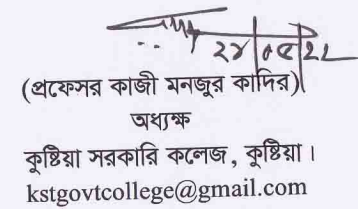 (প্রফেসর কাজী মনজুর কাদির)
অধ্যক্ষ
কুষ্টিয়া সরকারি কলেজ, কুষ্টিয়া।
kstgovtcollege@gmail.com